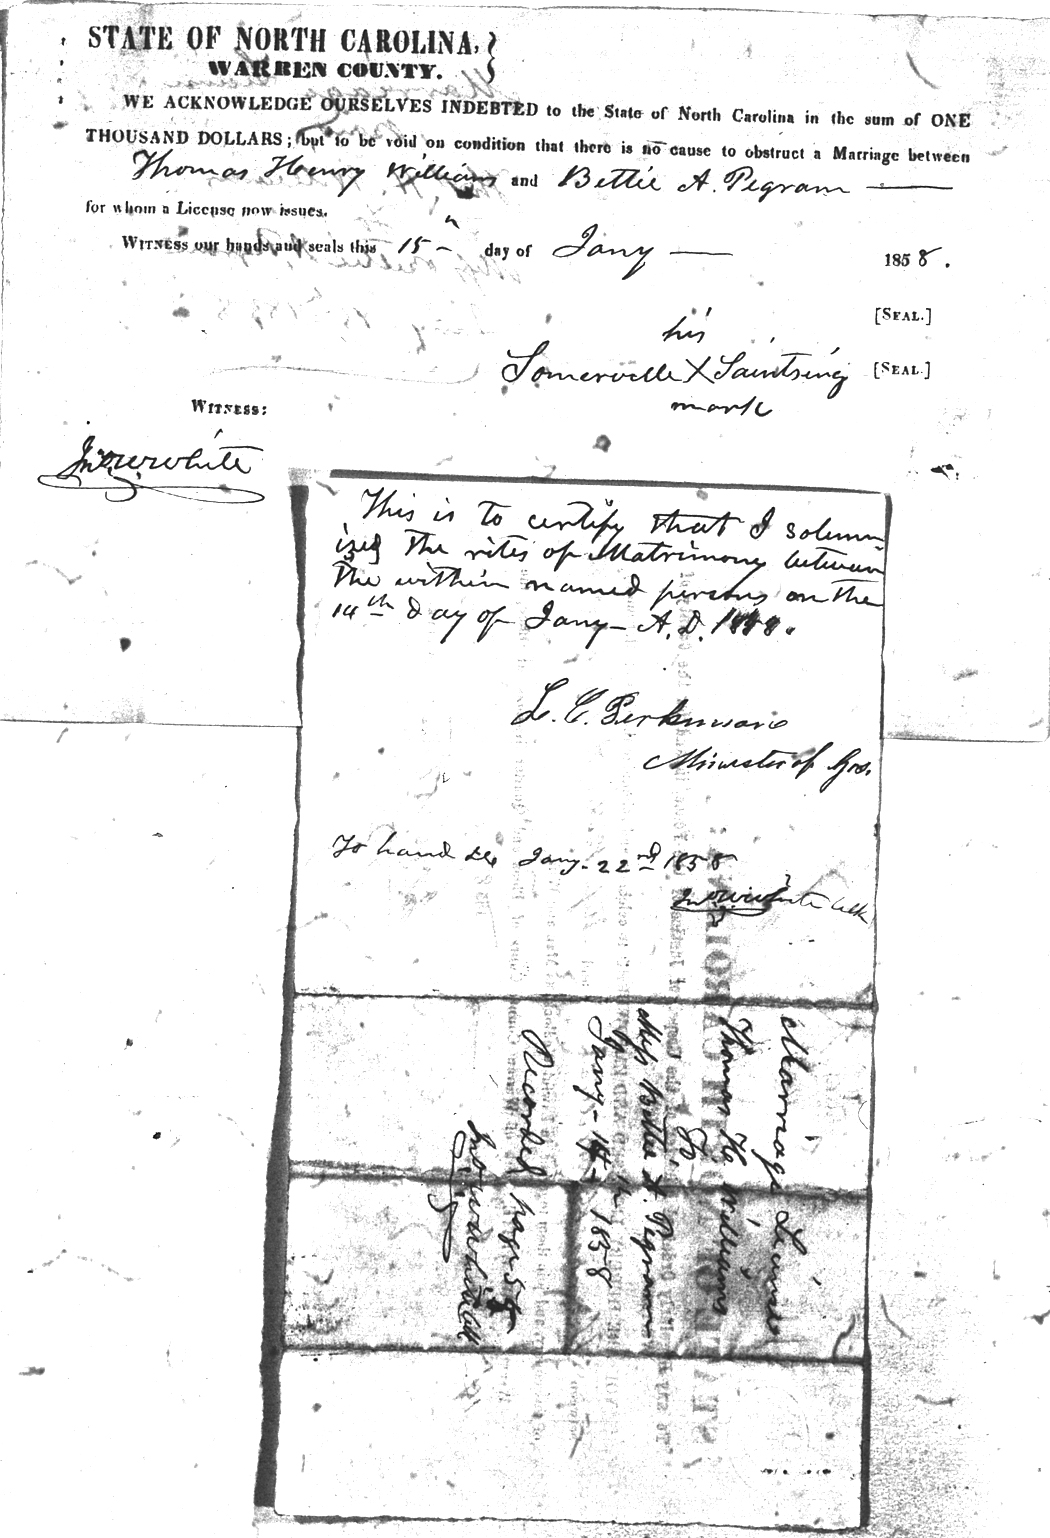 STATE OF NORTH CAROLINA,
WARREN COUNTY.
WE ACKNOWLEDGE OURSELVES INDEBTED to the State of North Carolina in the sum of ONE
THOUSAND DOLLARS; but to be void on condition that there is no cause to obstruct a Marriage between
Thomas Henry Williams and Bettie A. Pegram
for whom a License now issues.
WITNESS our hands and seals this 15 day of Jany 1858.
[SEAL.]
his
Somerville X Saintsing [SEAL.]
mark
WITNESS:
Jno W White
This is to certify that I solemn
ized the rites of Matrimony between
the within named persons on the
14th day of Jany - A.D. 1858.
L. C. Perkinson
Minister of Gos.
To hand Jany. 22nd 1858
Jno W White Clk
Marriage License
Thomas H. Williams
To
Miss Bettie A. Pegram
Jany - 14 - 1858
Recorded page 54
Jno W White Clk